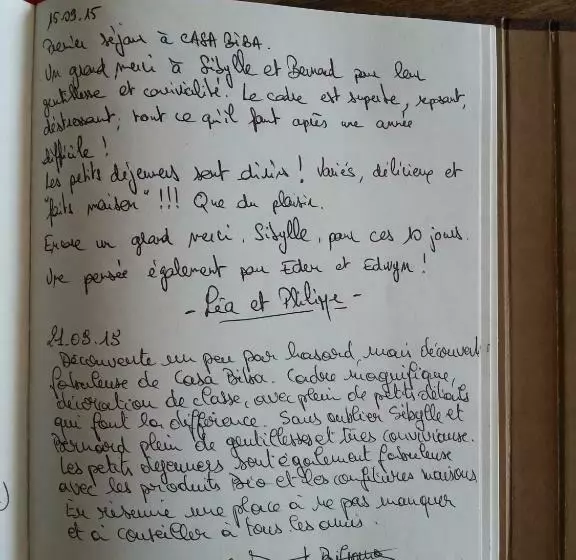 15.09.15
Premier séjour à CASA BiBA.
Un grand merci à Sibylle et Bernard pour leur
gentillesse et convivialité. Le cadre est superbe, reposant,
déstressant ; tout ce qu'il faut après une année
difficile !
Les petits déjeuners sont divins ! Variés, délicieux et
"faits maison" !!! Que du plaisir.
Encore un grand merci, Sibylle, pour ces 10 jours.
Une pensée également pour Eden et Edwyn !
- Léa et Philippe -
21.09.15
Découverte un peu par hasard, mais découverte
fabuleuse de Casa Biba. Cadre magnifique,
décoration de classe, avec plein de petits détails
qui font la différence. Sans oublier Sibylle et
Bernard plein de gentillesses et très conviviause.
Les petits dejeuners sont également fabuleuse
avec les produits Bio et les confitières maisons
En résumé une place à ne pas manquer
et à conseiller à tous les amis.